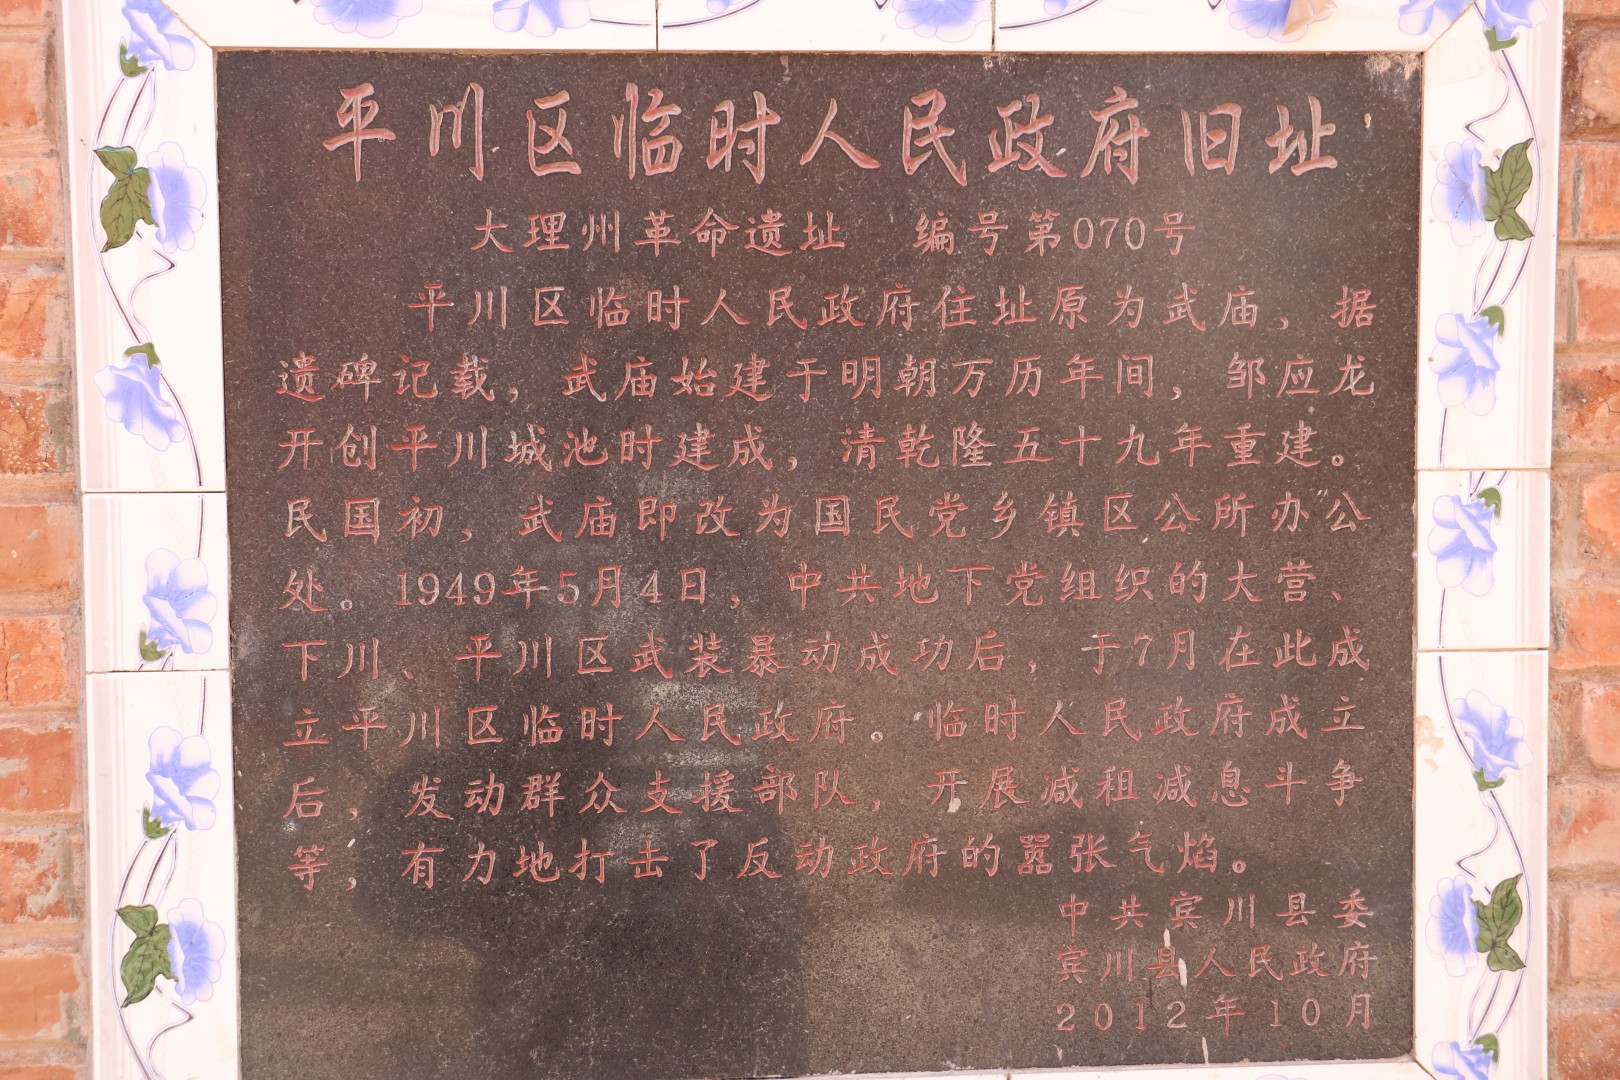 平川区临时人民政府旧址
大理州革命遗址 编号第070号
平川区临时人民政府住址原为武庙，据
遗碑记载，武庙始建于明朝万历年间，邹应龙
开创平川城池时建成，清乾隆五十九年重建。
民国初，武庙即改为国民党乡镇区公所办公
处。1949年5月4日，中共地下党组织的大营、
下川、平川区武装暴动成功后，于7月在此成
立平川区临时人民政府。临时人民政府成立
后，发动群众支援部队，开展减租减息斗争
等，有力地打击了反动政府的嚣张气焰。
中共宾川县委
宾川县人民政府
2012年10月